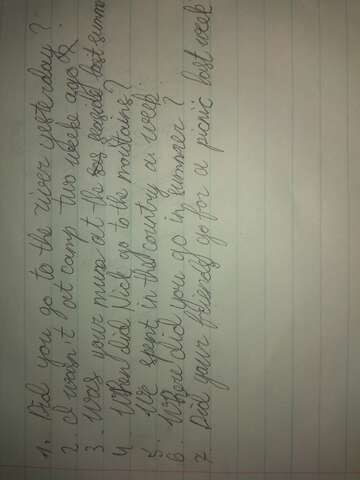 1. Did you go to the river yesterday?
2. I wasn't at camp two weeks ago
3. Was your mum at the seaside last summ
4. When did Nick go to the mountains?
5. We spent in the country a week.
6. Where did you go in summer?
7. Did your friends go for a picnic last week